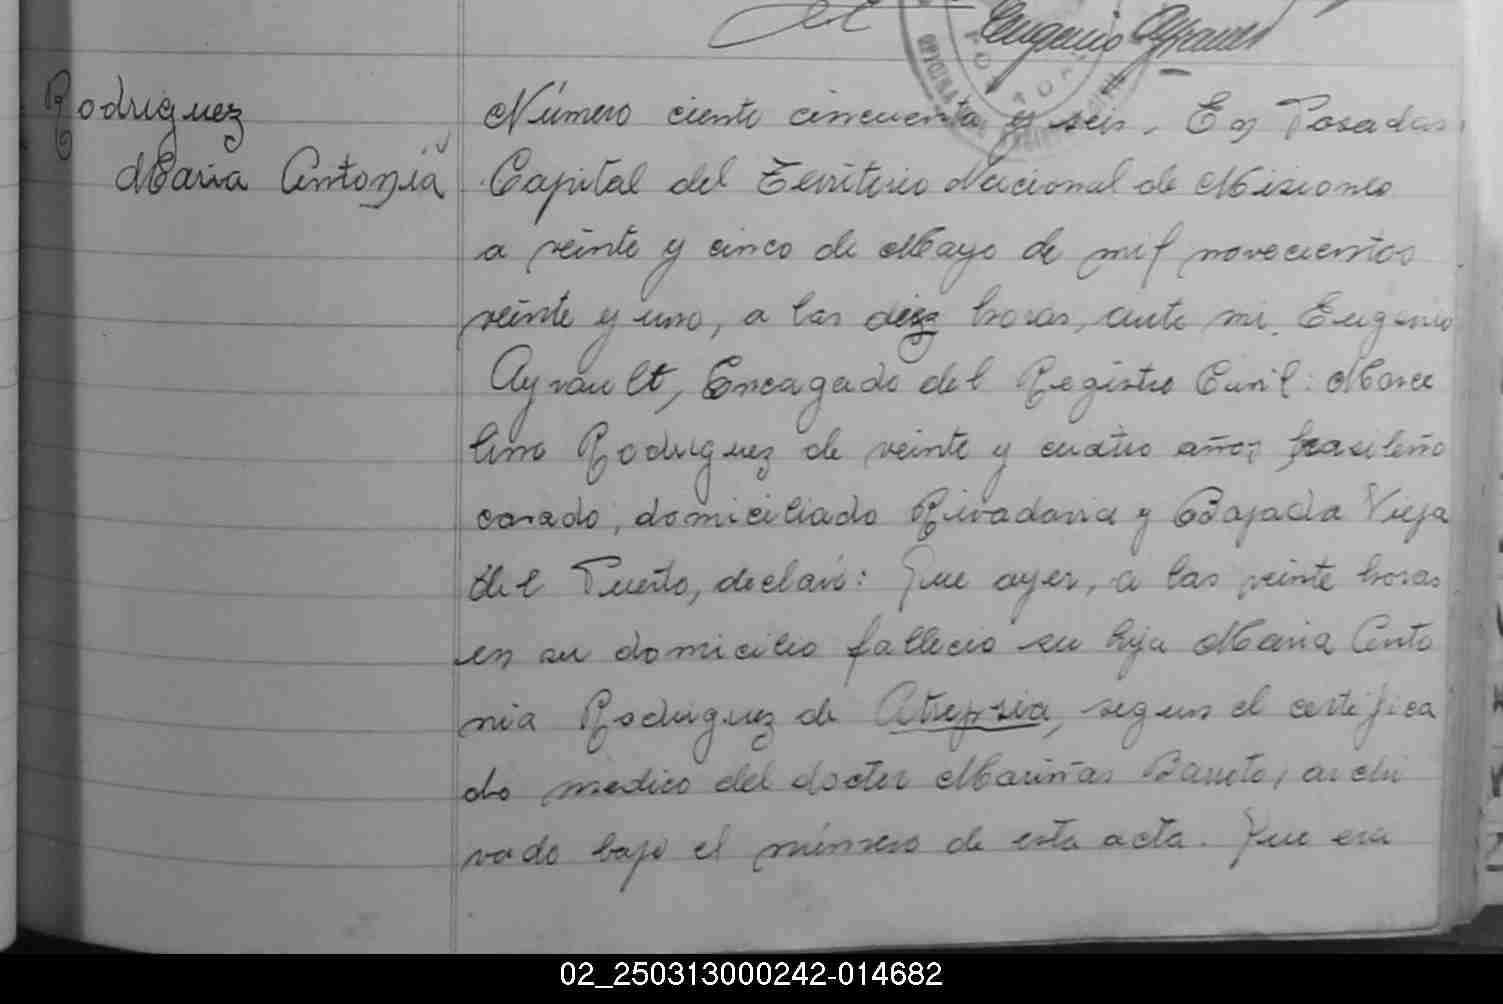 Eugenio Ayrault
Rodriguez
Maria Antonia
Número ciento cincuenta y seis. En Posadas,
Capital del Territorio Nacional de Misiones
a veinte y cinco de Mayo de mil novecientos
veinte y uno, a las diez horas, ante mi, Eugenio
Ayrault, Encagado del Registro Civil: Marce
lino Rodriguez de veinte y cuatro años brasileño
casado, domiciliado Rivadavia y Bajada Vieja
del Puerto, declaró: Que ayer, a las veinte horas
en su domicilio fallecio su hija Maria Anto
nia Rodriguez de Atrepsia, segun el certifica
do medico del doctor Mariñas Barreto, archi
vado bajo el número de esta acta. Que era
02_250313000242-014682